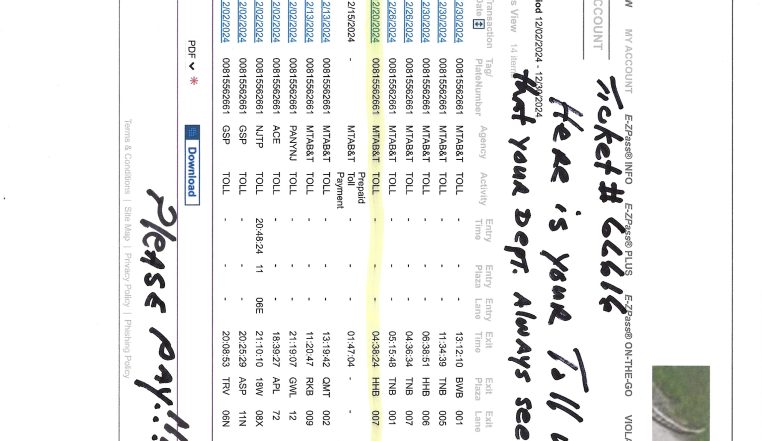 MY ACCOUNT E-ZPass® INFO E-ZPass® PLUS E-ZPass® ON-THE-GO
Ticket #
ACCOUNT
Here is your Toll
12/02/2024 - 12/30/2024
that your Dept. Always see
View 14 items
Transaction Date Tag/ Plate Number Agency Activity Entry Time Entry Plaza Entry Lane Exit Time Exit Plaza Exit Lane
2/30/2024 00815562661 MTAB&T TOLL - - - 13:12:10 BWB 001
2/30/2024 00815562661 MTAB&T TOLL - - - 11:34:39 TNB 005
2/30/2024 00815562661 MTAB&T TOLL - - - 06:38:51 HHB 006
2/26/2024 00815562661 MTAB&T TOLL - - - 04:36:34 TNB 007
2/26/2024 00815562661 MTAB&T TOLL - - - 05:15:48 TNB 001
2/20/2024 00815562661 MTAB&T TOLL - - - 04:38:24 HHB 007
2/15/2024 - MTAB&T Prepaid Toll Payment - - - 01:47:04 - -
2/13/2024 00815562661 MTAB&T TOLL - - - 13:19:42 QMT 002
2/13/2024 00815562661 MTAB&T TOLL - - - 11:20:47 RKB 009
2/02/2024 00815562661 PANYNJ TOLL - - - 21:19:07 GWL 12
2/02/2024 00815562661 ACE TOLL - - - 18:39:27 APL 72
2/02/2024 00815562661 NJTP TOLL 20:48:24 11 06E 21:10:10 18W 08X
2/02/2024 00815562661 GSP TOLL - - - 20:25:29 ASP 11N
2/02/2024 00815562661 GSP TOLL - - - 20:08:53 TRV 06N
PDF * Download
Please pay..!!
Terms & Conditions | Site Map | Privacy Policy | Phishing Policy